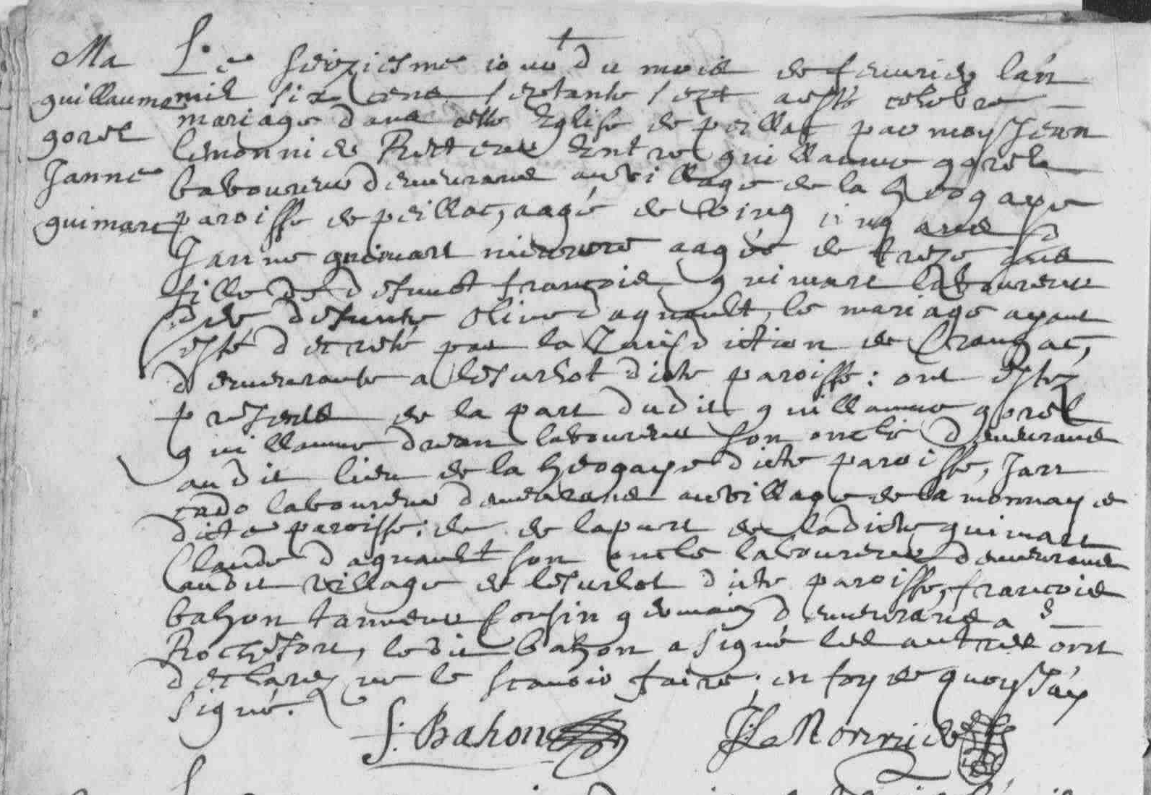 Ma
guillaume
gorel
Janne
guimart
Le seiziesme jour du mois de febvrier l'an
mil six cens septante sept a esté celebré
mariage dans cette Eglise de peillac par moy Jean
lemonnier Recteur Entre guillaume gorel
laboureur demeurant au village de la
paroisse de peillac, aagé de vingt cinq ans
Janne guimart mineure aagée de treze ans
fille de defunct françois guimart laboureur
defunte Olive daguault, le mariage ayant
esté decreté par la Jurisdiction de
demeurante a dicte paroisse: ont estez
presents de la part dudit guillaume gorel
guillaume drean laboureur son oncle demeurant
audit lieu de la dicte paroisse, Jan
endo laboureur demeurant au village de la monnay e
dicte paroisse: de la part de ladicte guimart
Claude daguault son oncle laboureur demeurant
audit village de dicte paroisse, françois
bahon tanneur Cousin germain demeurant a
Rochefort, ledit bahon a signé les autres ont
declarez ne le scavoir faire, en foy de quoy j'ay
signé.
f: Bahon
J. Le Monnier